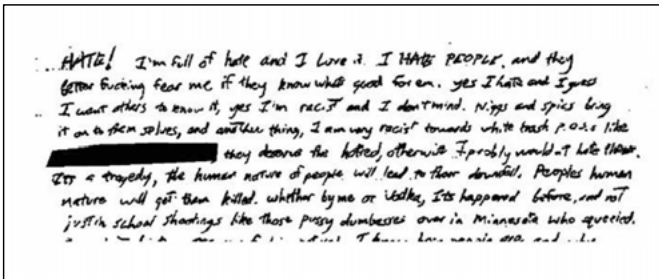 HATE! I'm full of hate and I love it. I HATE PEOPLE, and they
better fucking fear me if they know whats good for em. yes I hate and I guess
I want others to know it, yes I'm racist and I don't mind. Nigs and spics bring
it on to them selves, and another thing, I am very racist towards white trash P.O.S.s like
they deserve the hatred, otherwise I probly would n't hate them.
Its a tragedy, the human nature of people will lead to their downfall. Peoples human
nature will get them killed. whether by me or Vodka, Its happened before, and not
just in school shootings like those pussy dumbasses over in Minnesota who squeeled.